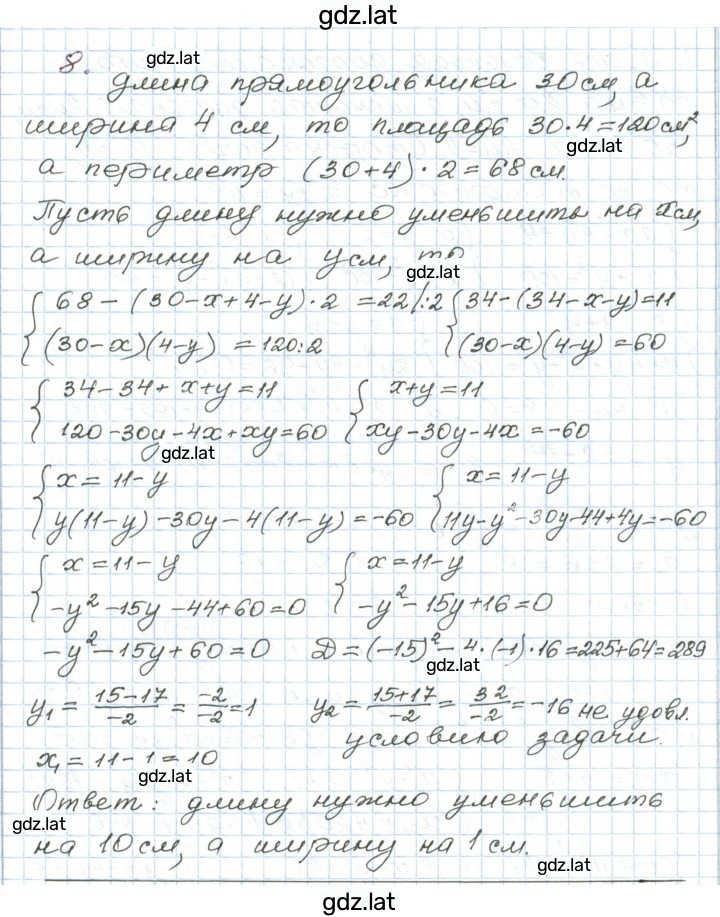 gdz.lat
8. gdz.lat
Длина прямоугольника 30 см, а
ширина 4 см, то площадь 30·4=120 см²,
gdz.lat
а периметр (30+4)·2=68 см.
Пусть длину нужно уменьшить на x см,
а ширину на y см, то
gdz.lat
{68-(30-x+4-y)·2 =22/:2 {34-(34-x-y)=11
{(30-x)(4-y) =120:2 {(30-x)(4-y)=60
{34-34+x+y=11 {x+y=11
{120-30y-4x+xy=60 {xy-30y-4x=-60
gdz.lat
{x=11-y {x=11-y
{y(11-y)-30y-4(11-y)=-60 {11y-y²-30y-44+4y=-60
{x=11-y {x=11-y
{-y²-15y-44+60=0 {-y²-15y+16=0
-y²-15y+60=0 D=(-15)²-4·(-1)·16=225+64=289
gdz.lat
y₁=15-17/-2=-2/-2=1 y₂=15+17/-2=32/-2=-16 не удовл.
условию задачи.
x₁=11-1=10
gdz.lat
Ответ: длину нужно уменьшить
gdz.lat
на 10 см, а ширину на 1 см.
gdz.lat
gdz.lat